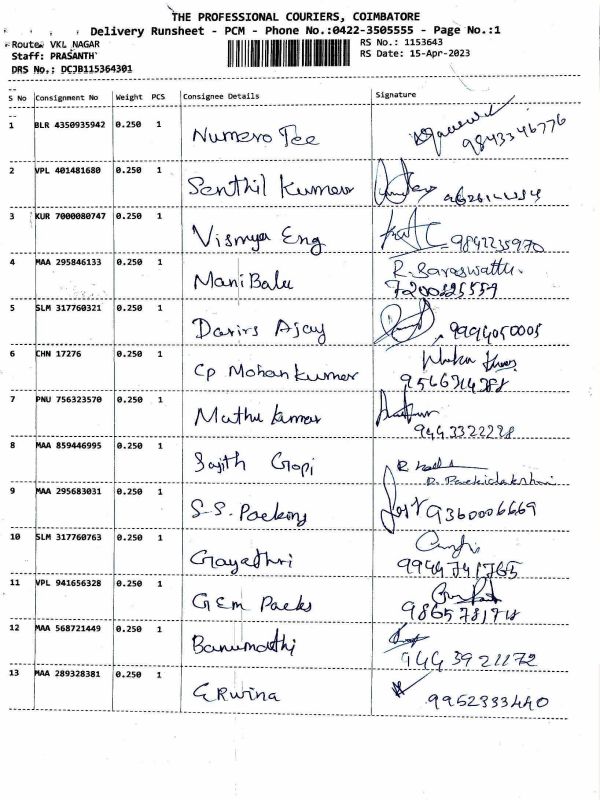 THE PROFESSIONAL COURIERS, COIMBATORE
Delivery Runsheet - PCM - Phone No.:0422-3505555 - Page No.:1
Route: VKL NAGAR
RS No.: 1153643
Staff: PRASANTH
RS Date: 15-Apr-2023
DRS No.: DCJB115364301
S No Consignment No Weight PCS Consignee Details Signature
1 BLR 4350935942 0.250 1 Numero Tee 9843346776
2 VPL 401481680 0.250 1 Senthil Kumar
3 KUR 7000080747 0.250 1 Vismya Eng 9842235970
4 MAA 295846133 0.250 1 Mani Balu R. Saraswathi.
5 SLM 317760321 0.250 1 Ajay 9994050005
6 CHN 17276 0.250 1 CP Mohan Kumar
9566314388
7 PNU 756323570 0.250 1 Muthu Kumar
9443322228
8 MAA 859446995 0.250 1 Sajith Gopi
9 MAA 295683031 0.250 1 S-S. Packing 9360006669
10 SLM 317760763 0.250 1 Gayathri
9944741765
11 VPL 941656328 0.250 1 GEM Packs
12 MAA 568721449 0.250 1 Banumathi
9443921172
13 MAA 289328381 0.250 1 Erwina
9952333440